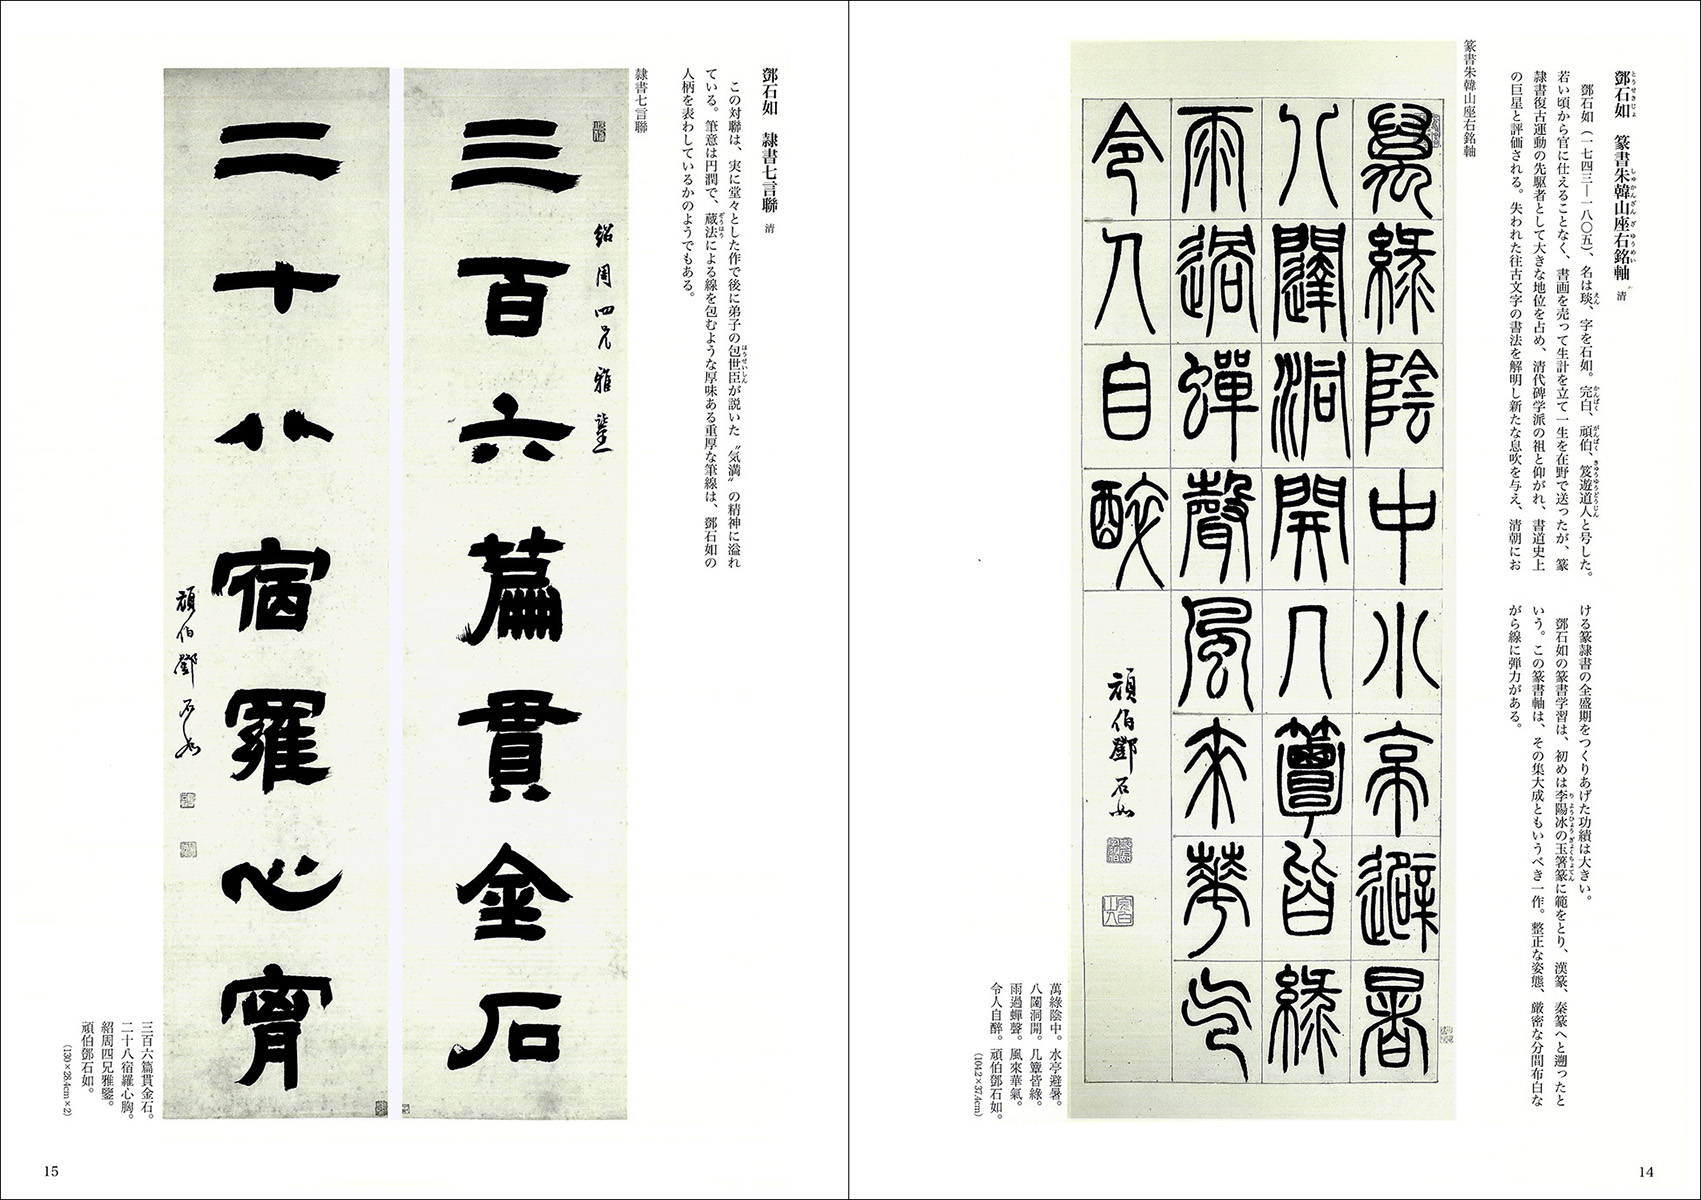 鄧石如　篆書朱韓山座右銘軸　清
とうせきじょ
しゅかんざんざゆうめい
鄧石如（一七四三―一八〇五）、名は琰、字を石如。完白、頑伯、笈遊道人と号した。
えん
かんぱく
がんぱく
きゅうゆうどうじん
若い頃から官に仕えることなく、書画を売って生計を立て一生を在野で送ったが、篆
隷書復古運動の先駆者として大きな地位を占め、清代碑学派の祖と仰がれ、書道史上
の巨星と評価される。失われた往古文字の書法を解明し新たな息吹を与え、清朝にお
ける篆隷書の全盛期をつくりあげた功績は大きい。
鄧石如の篆書学習は、初めは李陽冰の玉箸篆に範をとり、漢篆、秦篆へと遡ったと
りようひょう
ぎょくちょてん
いう。この篆書軸は、その集大成ともいうべき一作。整正な姿態、厳密な分間布白な
がら線に弾力がある。
篆書朱韓山座右銘軸
萬綠陰中小亭避暑
八闥洞開几簟皆綠
雨過蟬聲風來華气
令人自醉
頑伯鄧石如
萬綠陰中。水亭避暑。
八闥洞開。几簟皆綠。
雨過蟬聲。風來華氣。
令人自醉。頑伯鄧石如。
（104.2×37.4cm）
14
鄧石如　隷書七言聯　清
この対聯は、実に堂々とした作で後に弟子の包世臣が説いた〝気満〟の精神に溢れ
ほうせいしん
ている。筆意は円潤で、蔵法による線を包むような厚味ある重厚な筆線は、鄧石如の
ぞうほう
人柄を表わしているかのようでもある。
隷書七言聯
紹周四兄雅鑒
三百六篇貫金石
二十八宿羅心胷
頑伯鄧石如
三百六篇貫金石。
二十八宿羅心胸。
紹周四兄雅鑒。
頑伯鄧石如。
（130×28.4cm×2）
15